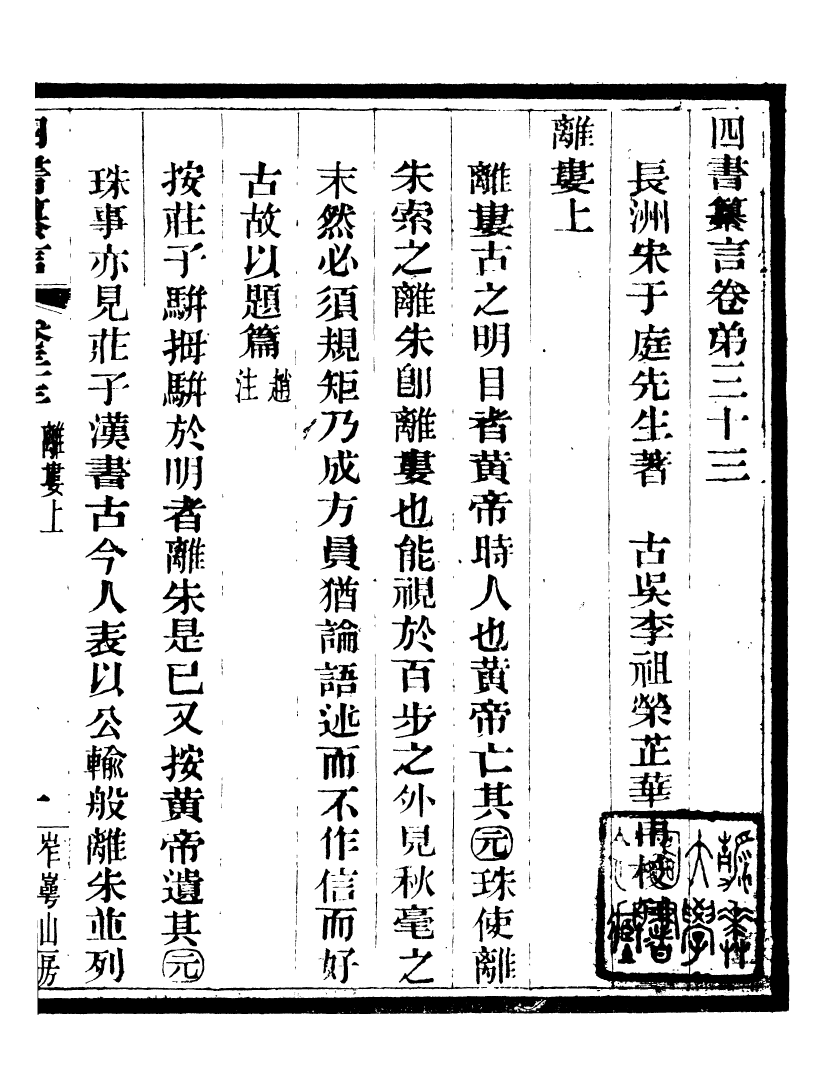 四書纂言卷弟三十三
長洲宋于庭先生著　古吳李祖榮芷華甫校
離婁上
離婁古之明目者黃帝時人也黃帝亡其元珠使離
朱索之離朱卽離婁也能視於百步之外見秋毫之
末然必須規矩乃成方員猶論語述而不作信而好
古故以題篇趙注
按莊子駢拇駢於明者離朱是已又按黃帝遺其元
珠事亦見莊子漢書古今人表以公輸般離朱並列
四書纂言 卷三十三 離婁上 一 岝崿山房